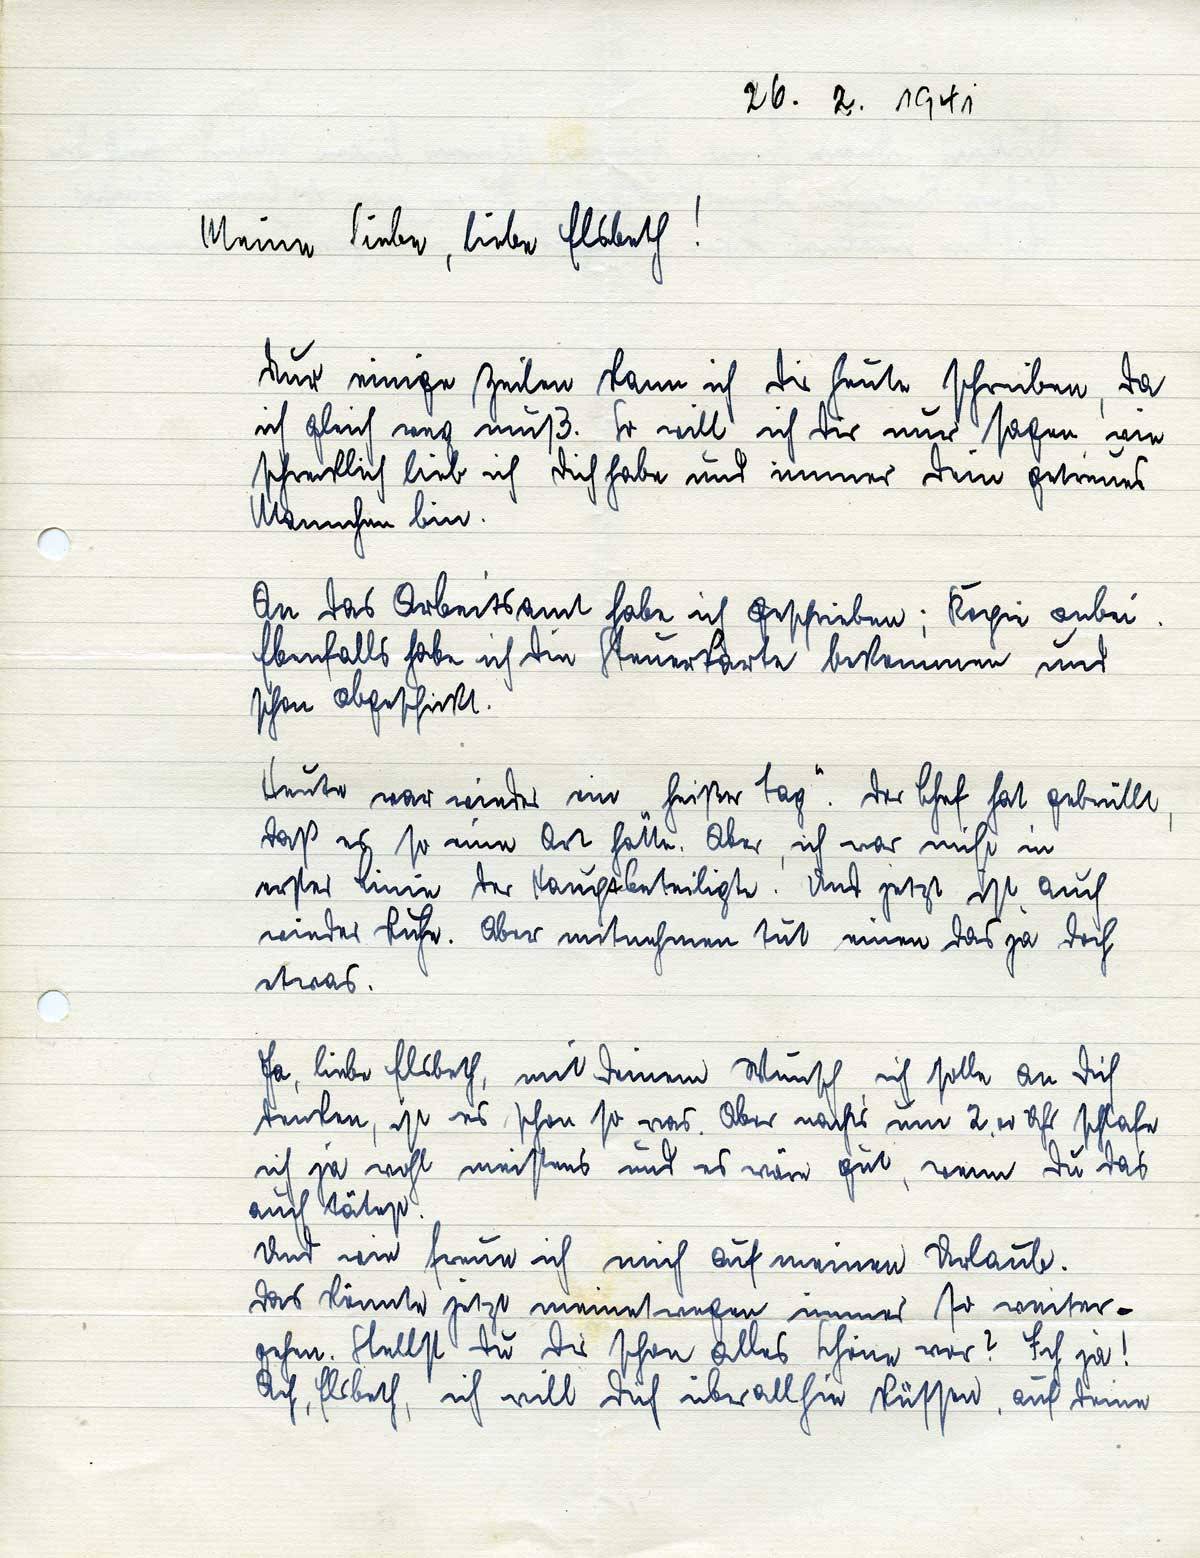 26. 2. 1941
Meine liebe, liebe Elsbeth!
Nur einige Zeilen kann ich Dir heute schreiben, da
ich gleich weg muß. So will ich Dir nur sagen, wie
schrecklich lieb ich Dich habe und immer Dein getreues
Mannchen bin.
An das Arbeitsamt habe ich geschrieben; Kopie anbei.
Ebenfalls habe ich die Steuerkarte bekommen und
schon abgeschickt.
Heute war wieder ein „heißer Tag“. Der Chef hat gebrüllt,
daß es so eine Art hatte. Aber, ich war nicht in
erster Linie der Hauptbeteiligte. Und jetzt ist auch
wieder Ruhe. Aber mitnehmen tut einen das ja doch
etwas.
Ja, liebe Elsbeth, mit Deinem Wunsch, ich solle an Dich
denken, ist es schon so was. Aber nachts um 2.00 Uhr schlafe
ich ja wohl meistens und es wäre gut, wenn Du das
auch tätest.
Und wie freue ich mich auf meinen Urlaub.
Das könnte jetzt meinetwegen immer so weiter-
gehen. Stellst Du Dir schon alles Schöne vor? Ich ja!
Ach, Elsbeth, ich will Dich überallhin küssen, auf Deine